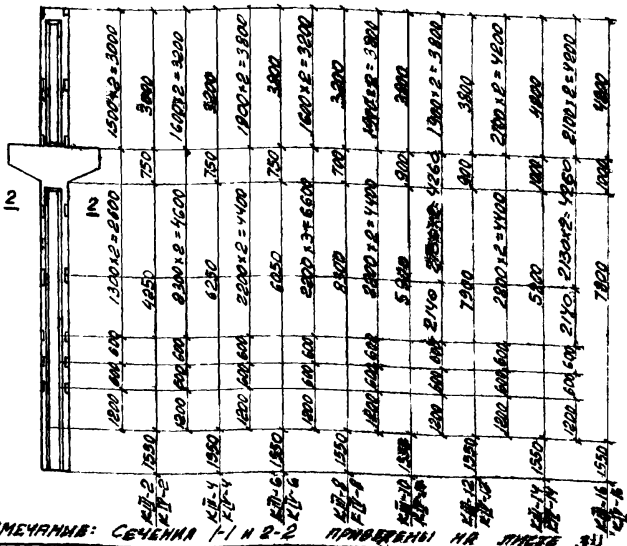 1500×2=3000
3000
1600×2=3200
3200
1900×2=3800
3800
1600×2=3200
3200
1900×2=3800
3800
1900×2=3800
3800
2100×2=4200
4800
2100×2=4200
4800
750
750
750
700
900
900
1000
1000
2
2
1300×2=2600
4250
2300×2=4600
6250
2200×2=4400
6050
2200×3=6600
2200×2=4400
2140
2130×2=4260
7900
2200×2=4400
2140
2130×2=4260
7800
1200 600 600
1200 600 600
1200 600 600
1200 600 600
1200 600 600
1200 600 600
1200 600 600
1200 600 600
1550
1550
1550
1550
1550
1550
1550
1550
КIII-2
КIV-2
КIII-4
КIV-4
КIII-6
КIV-6
КIII-8
КIV-8
КIII-10
КIII-12
КIV-12
КIII-14
КIV-14
КIII-16
КIV-16
МЕЧАНИЕ: СЕЧЕНИЯ 1-1 И 2-2 ПРИВЕДЕНЫ НА ЛИСТЕ